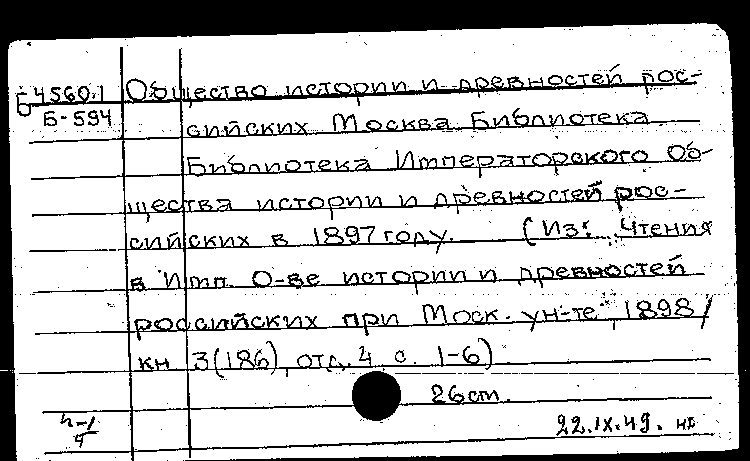 Б 4560.1 Общество истории и древностей рос-
Б-594
сийских Москва Библиотека
Библиотека Императорского Об-
щества истории и древностей рос-
сийских в 1897 году. (Из: "Чтения
в Имп. О-ве истории и древностей
российских при Моск. ун-те", 1898/
кн 3(186), отд. 4 с. 1-6)
26 ст.
22.IX.49.